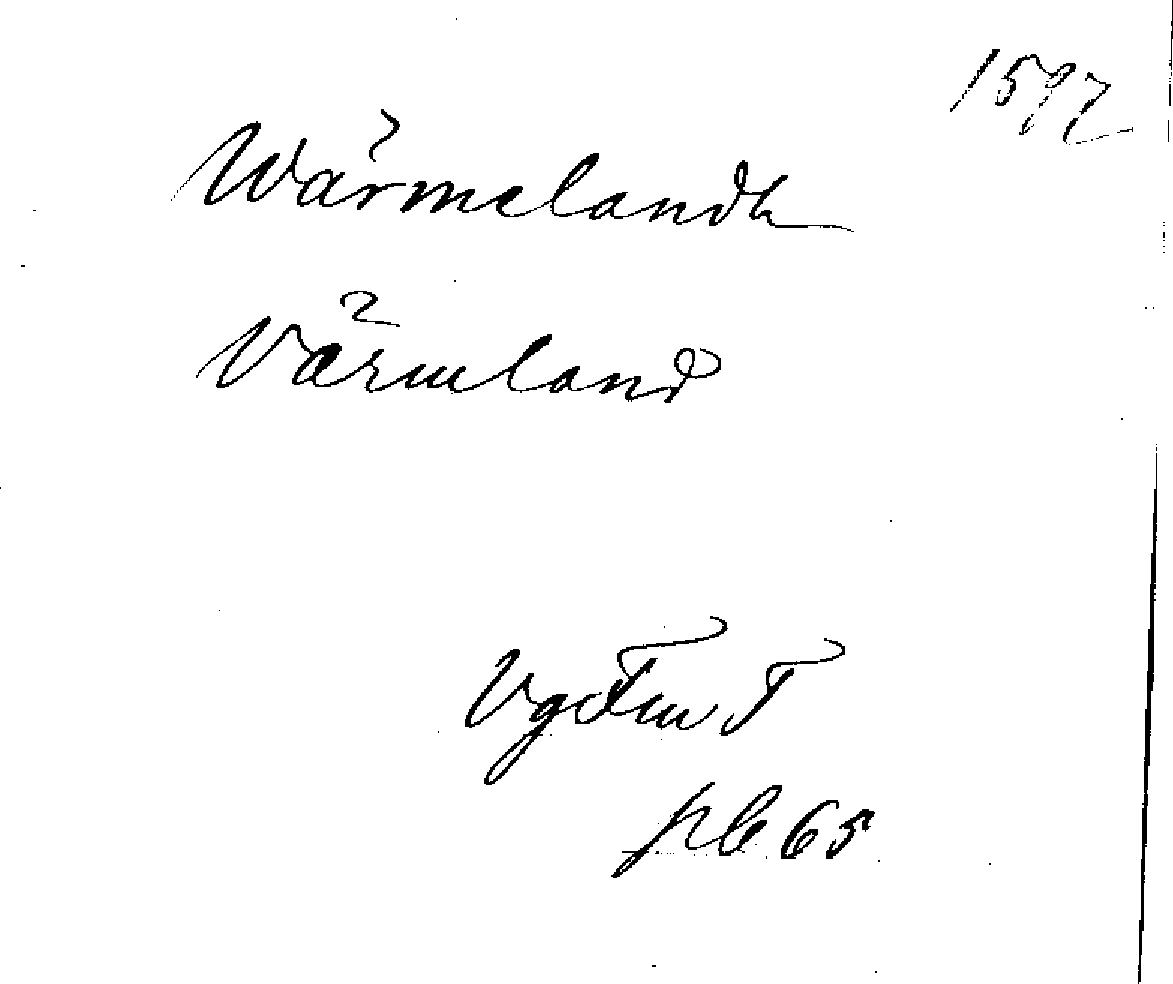 1597
Wärmelandh
Värmland
VgFmT
pl 65